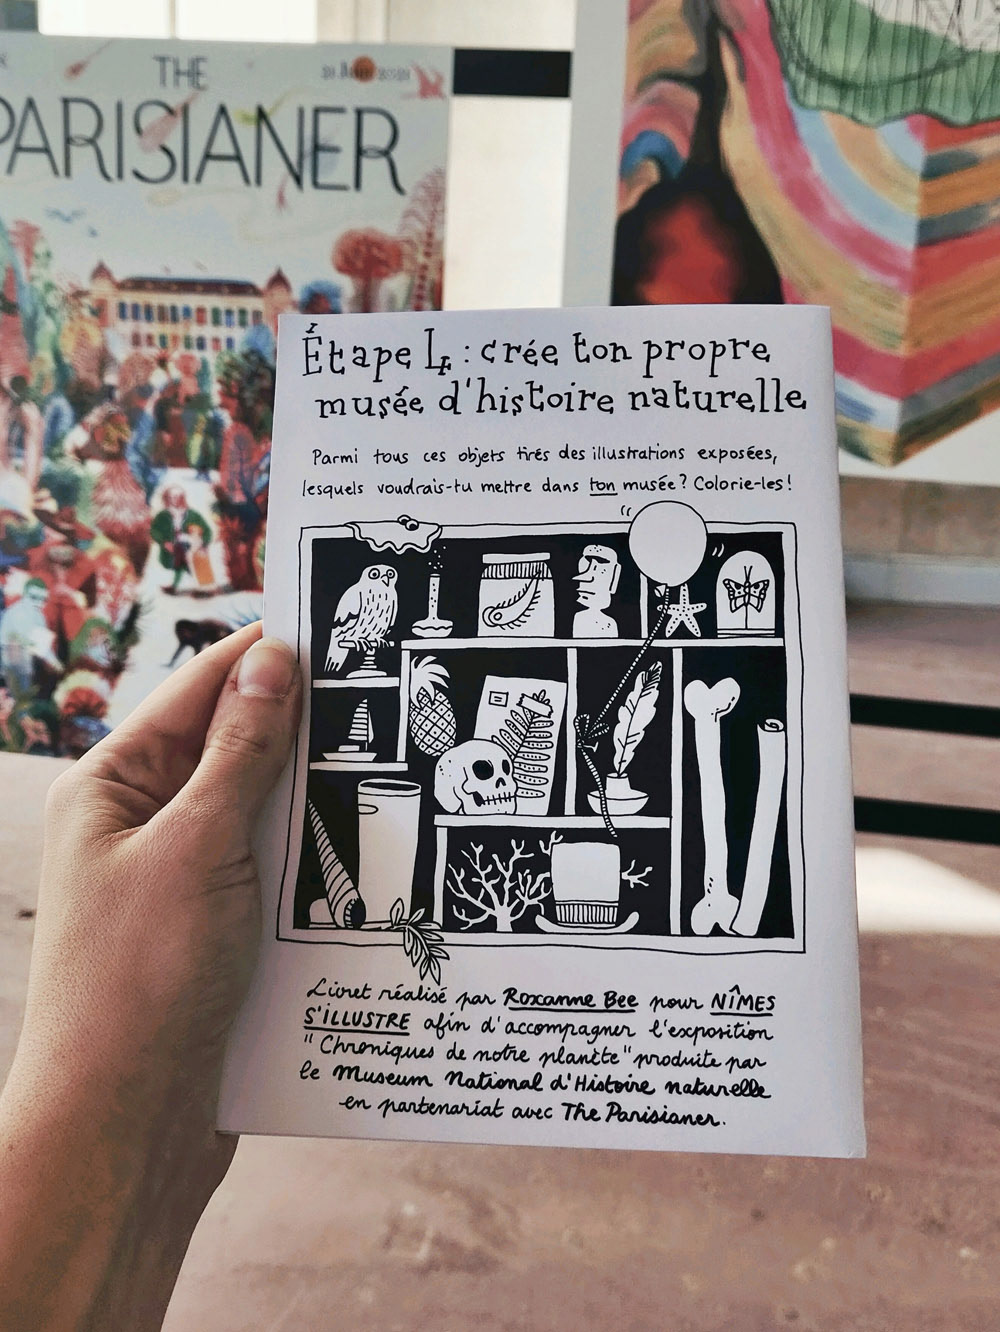 THE
PARISIANER
Étape 4 : crée ton propre
musée d'histoire naturelle
Parmi tous ces objets tirés des illustrations exposées,
lesquels voudrais-tu mettre dans ton musée ? Colorie-les !
Livret réalisé par Roxanne Bee pour NÎMES
S'ILLUSTRE afin d'accompagner l'exposition
"Chroniques de notre planète" produite par
le Museum National d'Histoire naturelle
en partenariat avec The Parisianer.